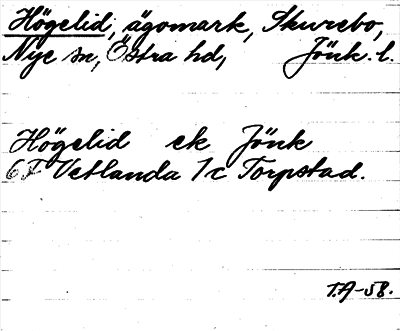 Högelid, ägomark, Skurebo,
Nye sn, Östra hd, Jönk. l.
Högelid ek Jönk
6F Vetlanda 1c Torpstad.
T.A-58.